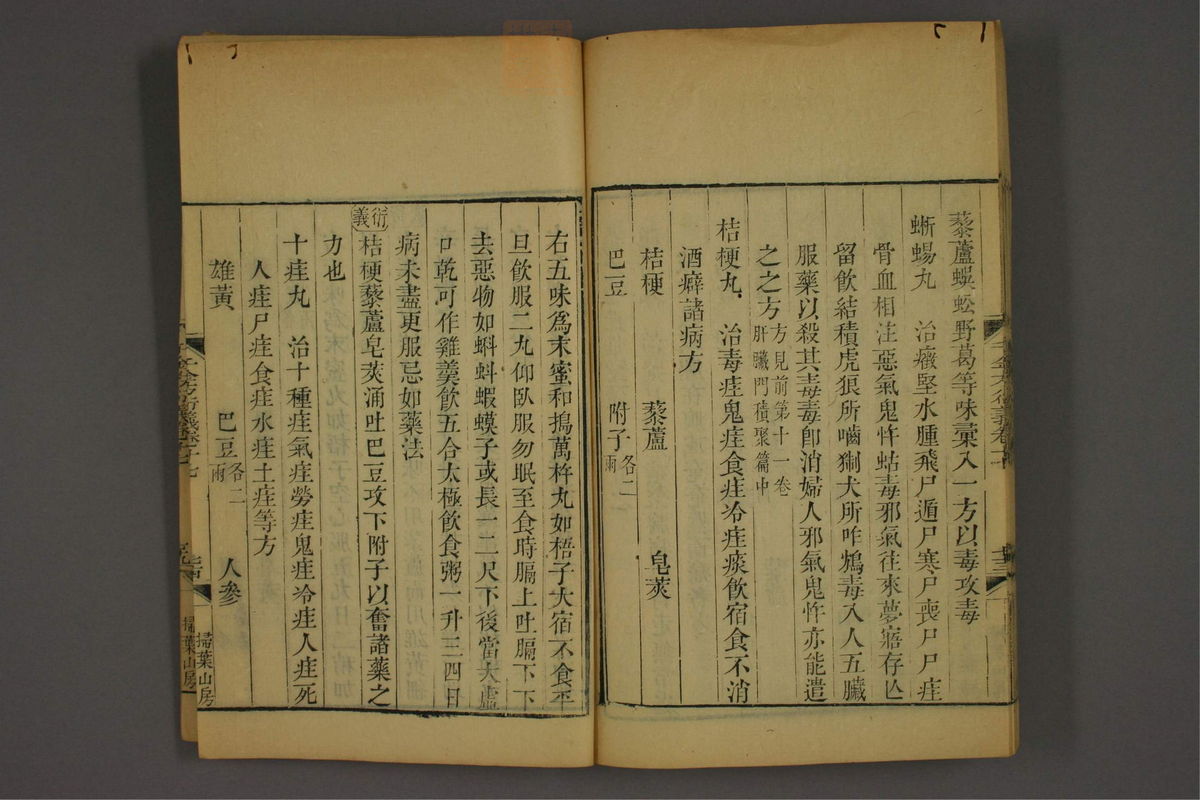 藜蘆蜈蚣野葛等味彙入一方以毒攻毒
蜥蜴丸　治癥堅水腫飛尸遁尸寒尸喪尸尸疰
骨血相注惡氣鬼忤蛄毒邪氣往來夢寤存亾
留飲結積虎狼所嚙猘犬所咋鴆毒入人五臟
服藥以殺其毒毒卽消婦人邪氣鬼忤亦能遣
之之方方見前第十一卷
肝臟門積聚篇中
桔梗丸　治毒疰鬼疰食疰冷疰痰飲宿食不消
酒癖諸病方
桔梗　藜蘆　皂莢
巴豆　附子各二
兩
右五味爲末蜜和搗萬杵丸如梧子大宿不食平
旦飲服二丸仰臥服勿眠至食時膈上吐膈下下
去惡物如蝌蚪蝦蟆子或長一二尺下後當大虛
口乾可作雞羹飲五合太極飲食粥一升三四日
病未盡更服忌如藥法
衍義
桔梗藜蘆皂莢涌吐巴豆攻下附子以奮諸藥之
力也
十疰丸　治十種疰氣疰勞疰鬼疰冷疰人疰死
人疰尸疰食疰水疰土疰等方
雄黃　巴豆各二
兩　人參
掃葉山房
掃葉山房